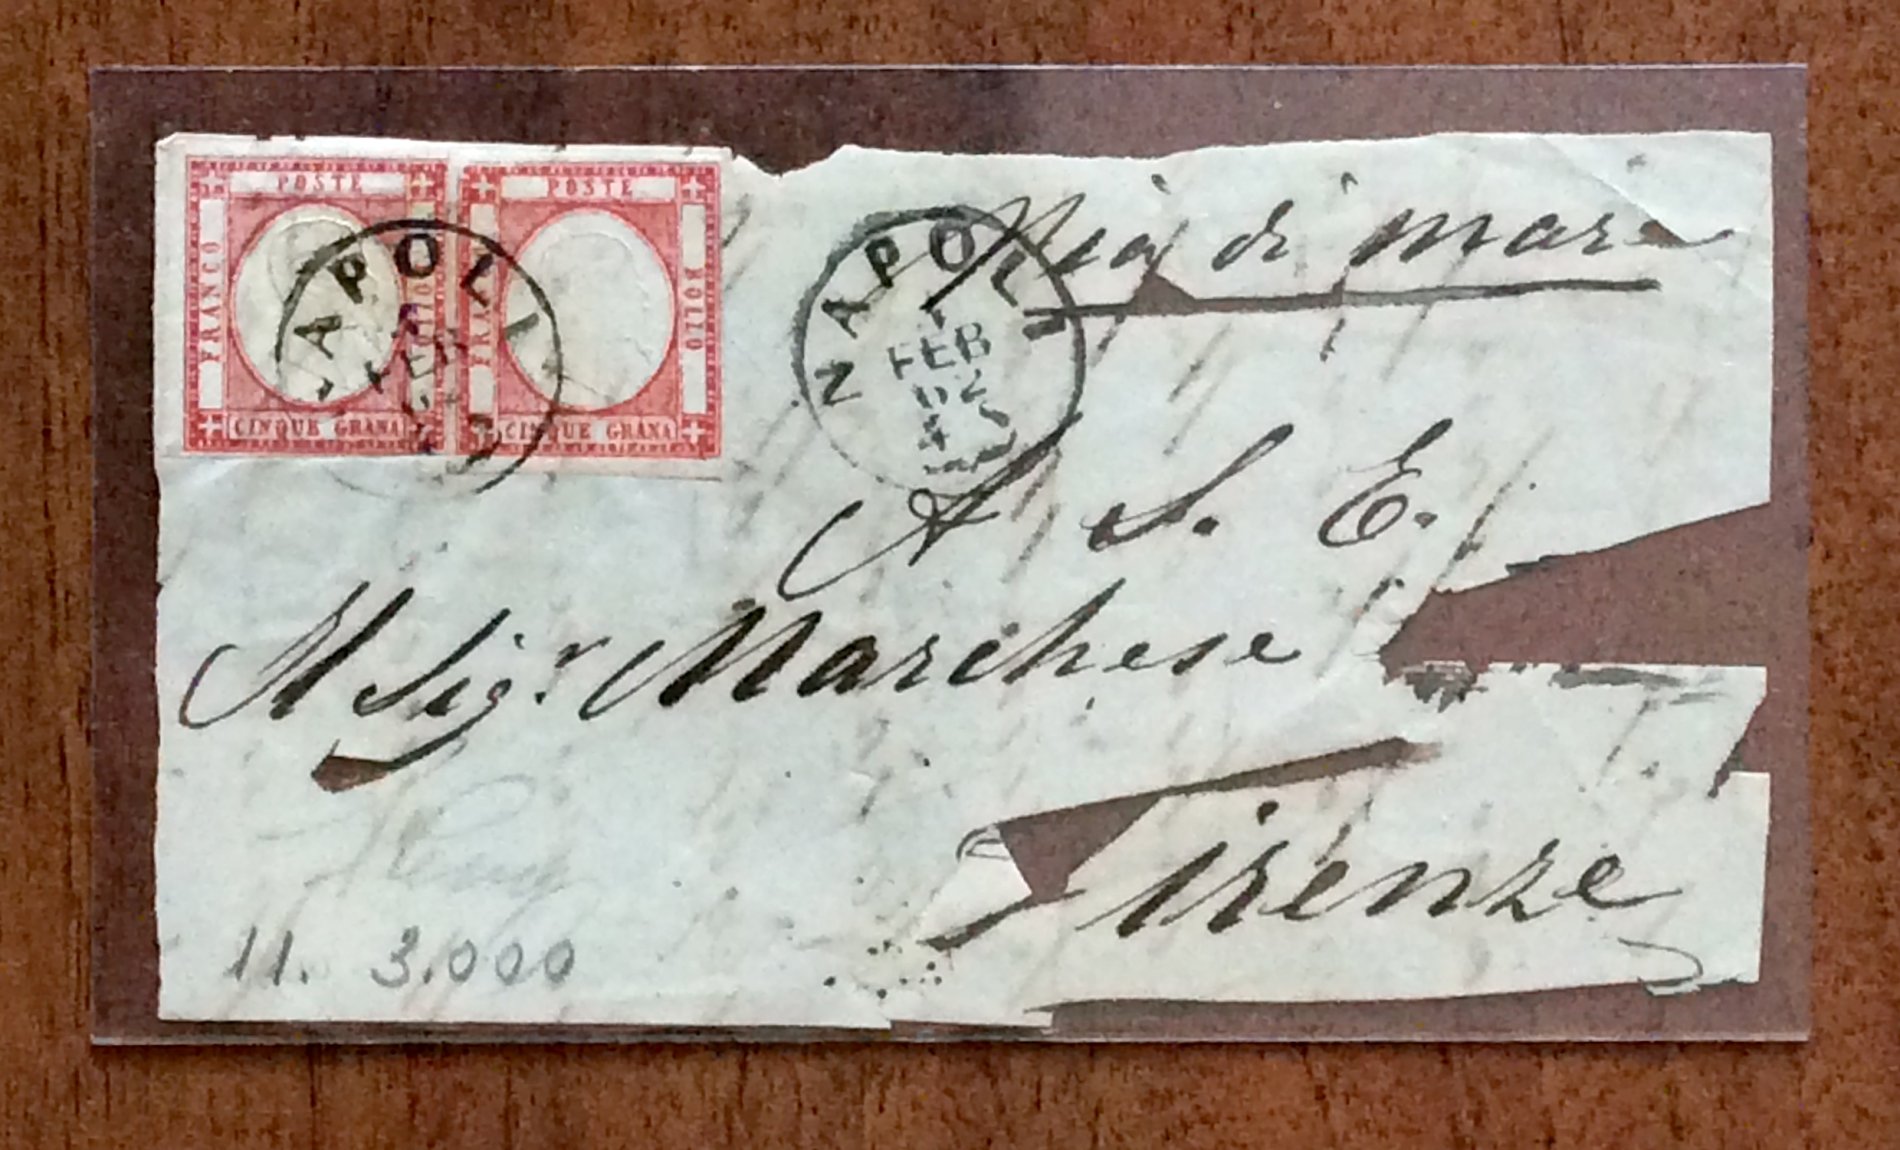 POSTE
FRANCO
BOLLO
CINQUE GRANA
POSTE
FRANCO
BOLLO
CINQUE GRANA
NAPOLI
FEB
NAPOLI
1
FEB
62
Via di mare
A S. E.
Il Sigr. Marchese
Firenze
11. 3.000